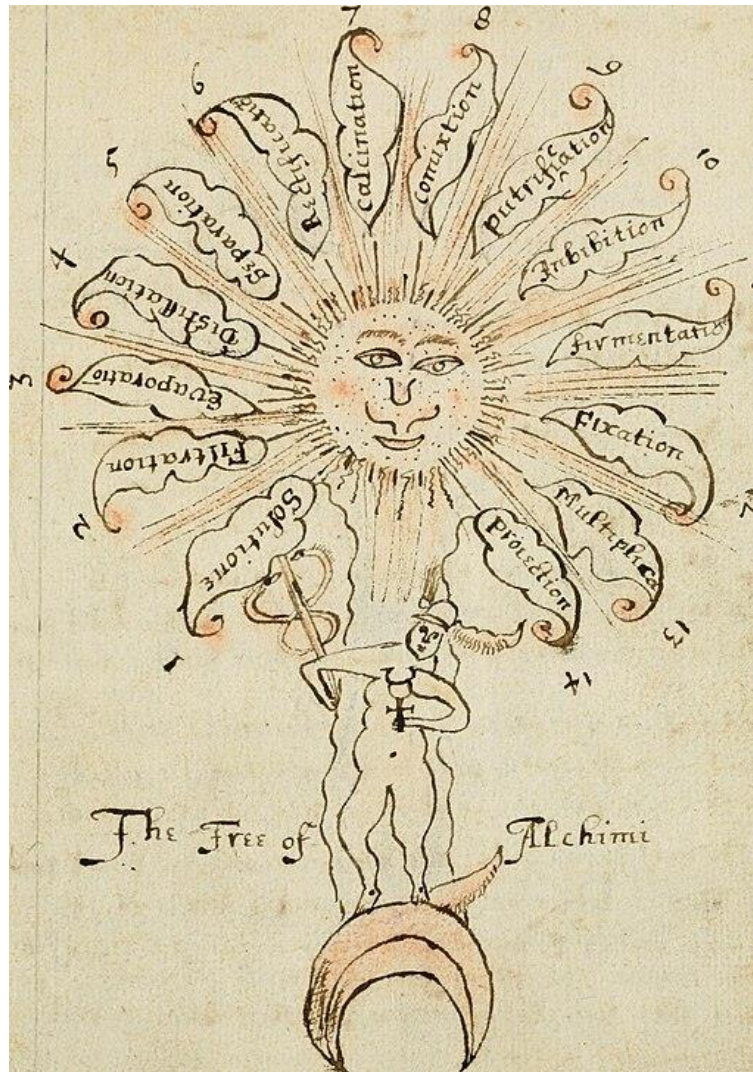 1 Solutione
2 Filtration
3 Evaporatio
4 Distillation
5 Separation
6 Rectificatio
7 calcination
8 comixtion
9 putrification
10 Inbibition
firmentatio
12 Fixation
13 Multiplica
14 proiection
The Tree of Alchimi